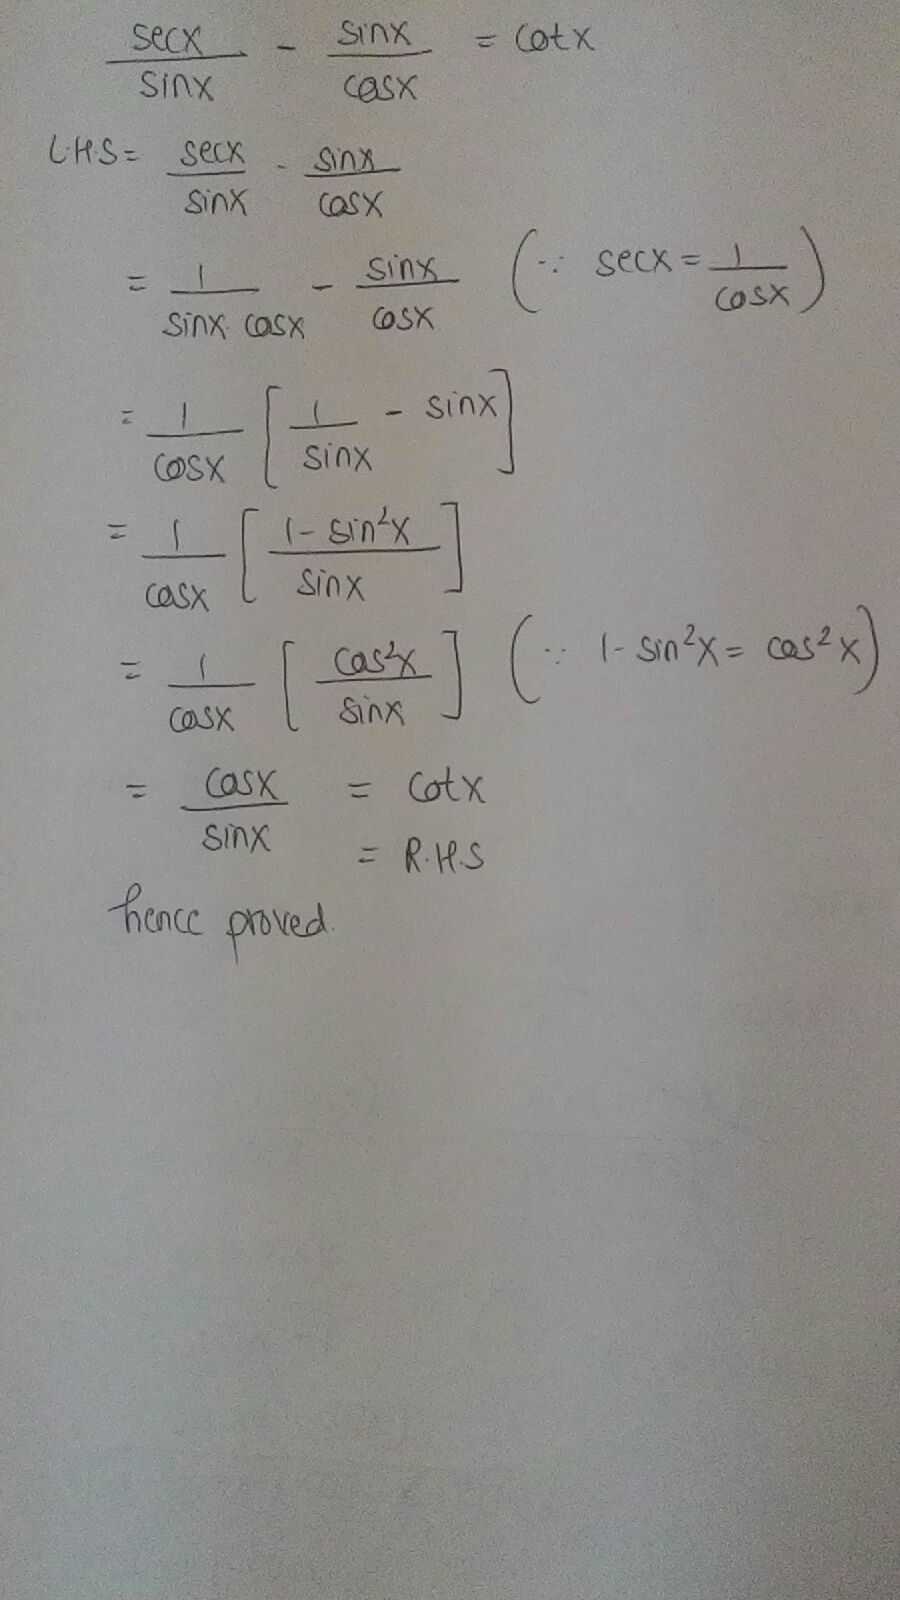 secx/sinx - sinx/cosx = cotx
L.H.S = secx/sinx - sinx/cosx
= 1/(sinx. cosx) - sinx/cosx (∵ secx = 1/cosx)
= 1/cosx [1/sinx - sinx]
= 1/cosx [(1 - sin²x)/sinx]
= 1/cosx [cos²x/sinx] (∵ 1 - sin²x = cos²x)
= cosx/sinx = cotx
= R.H.S
hence proved.